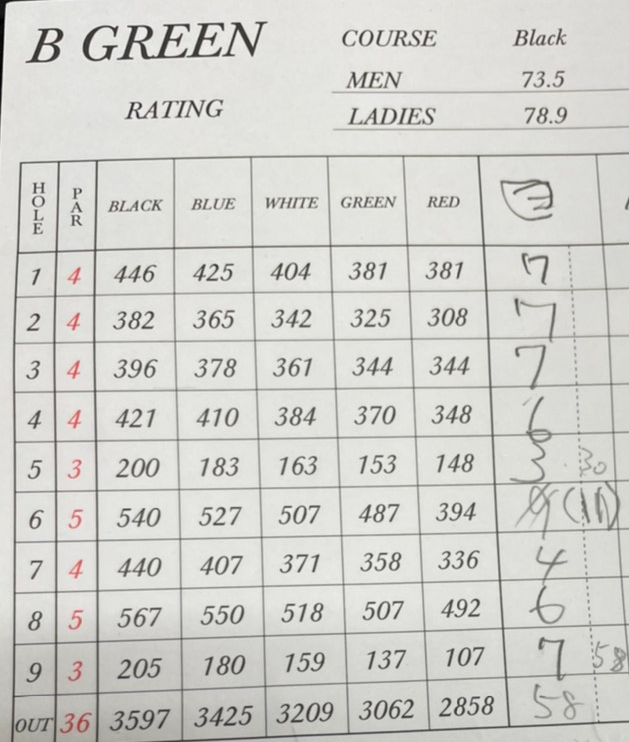 B GREEN
COURSE Black
MEN 73.5
RATING
LADIES 78.9
HOLE PAR BLACK BLUE WHITE GREEN RED
1 4 446 425 404 381 381 7
2 4 382 365 342 325 308 7
3 4 396 378 361 344 344 7
4 4 421 410 384 370 348 6
5 3 200 183 163 153 148 3 30
6 5 540 527 507 487 394 (11)
7 4 440 407 371 358 336 4
8 5 567 550 518 507 492 6
9 3 205 180 159 137 107 7 58
OUT 36 3597 3425 3209 3062 2858 58